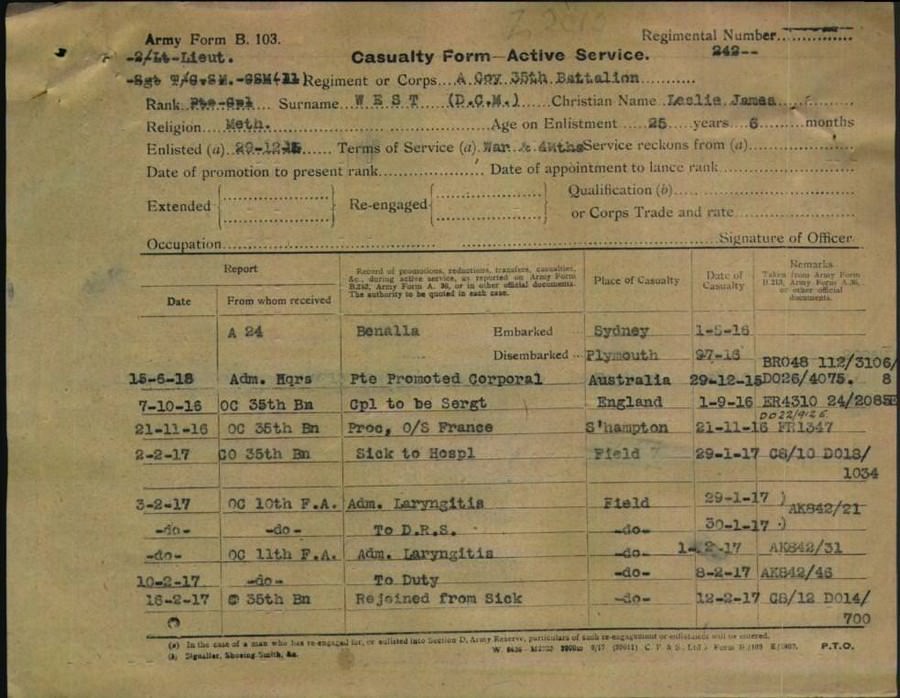 Army Form B. 103.
Regimental Number
-2/Lt-Lieut.
Casualty Form—Active Service.
242--
Regiment or Corps....A Coy 35th Battalion
Rank Surname...W E S T (D.C.M.).....Christian Name .Leslie James
Religion....Meth. Age on Enlistment .....25.....years...6........months
Enlisted (a) Terms of Service (a).War & 4Mths Service reckons from (a)
Date of promotion to present rank Date of appointment to lance rank
Extended Re-engaged Qualification (b)
or Corps Trade and rate
Occupation Signature of Officer
Report
Date
From whom received
Record of promotions, reductions, transfers, casualties, &c., during active service, as reported on Army Form B.213, Army Form A. 36, or in other official documents. The authority to be quoted in each case.
Place of Casualty
Date of Casualty
Remarks
Taken from Army Form B 213, Army Form A.36, or other official documents.
A 24 Benalla Embarked Sydney 1-5-16
Disembarked Plymouth
15-6-18 Adm. Hqrs Pte Promoted Corporal Australia 29-12-15 BR048 112/3106/
DO26/4075. 8
7-10-16 OC 35th Bn Cpl to be Sergt England 1-9-16 ER4310
21-11-16 OC 35th Bn Proc, O/S France S'hampton 21-11-16 FR1347
2-2-17 CO 35th Bn Sick to Hospl Field 29-1-17 C8/10 DO18/
1034
3-2-17 OC 10th F.A. Adm. Laryngitis Field 29-1-17 )
AK842/21
-do- -do- To D.R.S. -do- 30-1-17 )
-do- OC 11th F.A. Adm. Laryngitis -do- AK842/31
10-2-17 -do- To Duty -do- 8-2-17 AK842/46
16-2-17 35th Bn Rejoined from Sick -do- 12-2-17 C8/12 DO14/
700
(a) In the case of a man who has re-engaged for, or enlisted into Section D, Army Reserve, particulars of such re-engagement or enlistment will be entered.
(b) Signaller, Shoeing-Smith, &c.
P.T.O.